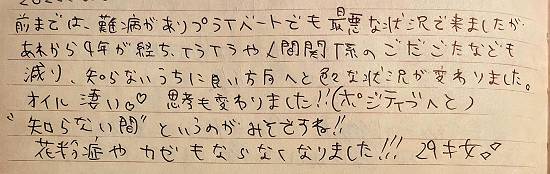 前までは、難病がありプライベートでも最悪な状況で来ましたが
あれから9年が経ち、イライラや人間関係のごたごたなども
減り、知らないうちに良い方向へと色々な状況が変わりました。
オイル凄い♡♡ 思考も変わりました!!(ポジティブへと)
"知らない間"というのがみそですね!!
花粉症やカゼもならなくなりました!!! 29才女